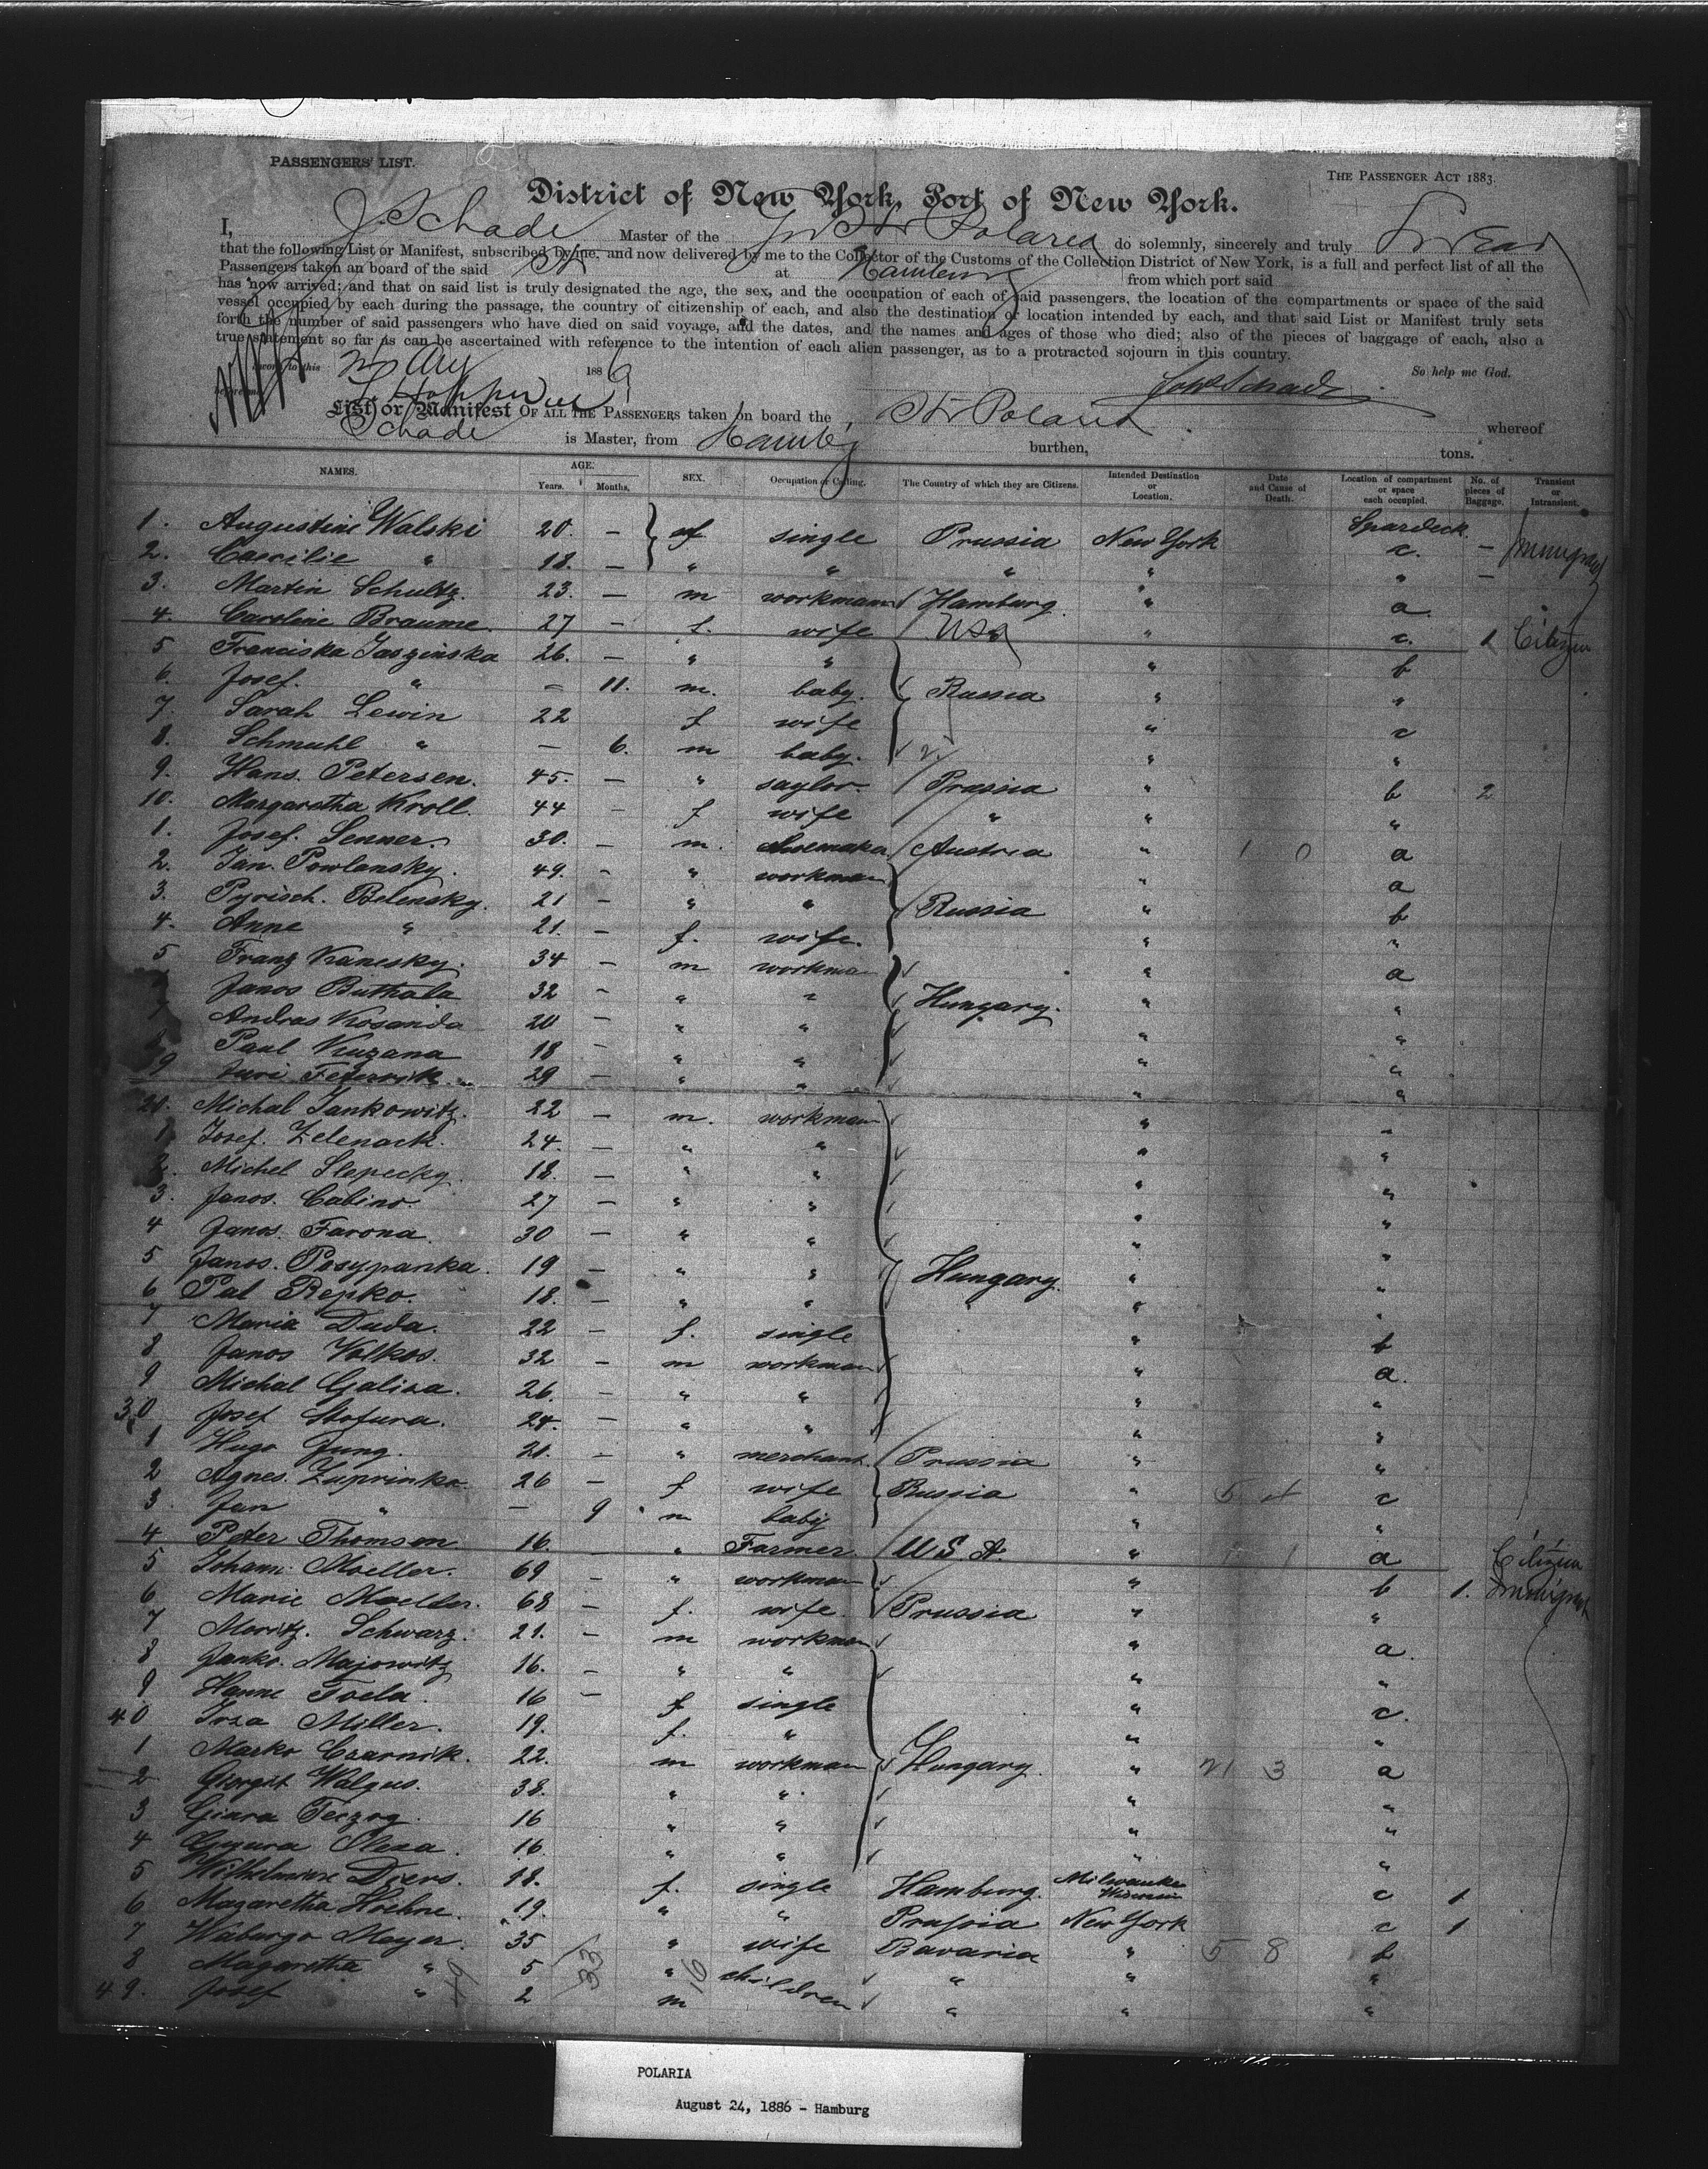 PASSENGERS' LIST.
THE PASSENGER ACT 1883.
District of New York, Port of New York.
I, J. Schade Master of the Polaria do solemnly, sincerely and truly Swear
that the following List or Manifest, subscribed by me, and now delivered by me to the Collector of the Customs of the Collection District of New York, is a full and perfect list of all the
Passengers taken on board of the said Str at Hamburg from which port said
has now arrived; and that on said list is truly designated the age, the sex, and the occupation of each of said passengers, the location of the compartments or space of the said
vessel occupied by each during the passage, the country of citizenship of each, and also the destination or location intended by each, and that said List or Manifest truly sets
forth the number of said passengers who have died on said voyage, and the dates, and the names and ages of those who died; also of the pieces of baggage of each, also a
true statement so far as can be ascertained with reference to the intention of each alien passenger, as to a protracted sojourn in this country.
Sworn to this Aug 1886 So help me God.
before me
List or Manifest OF ALL THE PASSENGERS taken on board the Str Polaria whereof
Schade is Master, from Hambg burthen, tons.
NAMES. AGE. Years. Months. SEX. Occupation or Calling. The Country of which they are Citizens. Intended Destination or Location. Date and Cause of Death. Location of compartment or space each occupied. No. of pieces of Baggage. Transient or Intransient.
1. Augustine Walski 20. — f single Prussia New York Spardeck c. — Immigrant
2. Caecilie " 18. — " " " " " —
3. Martin Schultz 23. — m workman Hamburg " a
4. Caroline Braume. 27 — f. wife USA " c. 1 Citizen
5 Franciska Jaszinska 26. — " " " b
6. Josef. " — 11. m. baby. Russia " "
7. Sarah Lewin 22 f wife " c
8. Schmuhl " — 6. m baby. 2 " "
9. Hans Petersen. 45. — " saylor Prussia " b 2
10. Margaretha Kroll. 44 — f wife " " "
1. Josef. Senner. 30. — m. shoemaker Austria " 1 0 a
2. Jan. Powlansky. 49. — " workman " a
3. Pyrisch. Belensky. 21 — " " Russia " b
4. Anne " 21. — f. wife. " "
5 Franz Kanesky. 34 — m workman " a
Janos Buthala 32 — " " Hungary. " "
7 Andras Kosanda 20 — " " " "
8 Paul Kuzana 18 — " " " "
19 Juri 29 — " " " "
20. Michal Jankowitz. 22 — m. workman " "
1 Josef. Zelenack. 24. — " " " "
2. Michel Slepecky 18. — " " " "
3. Janos. Cabino. 27 — " " " "
4 Janos. Farona. 30 — " " " "
5 Janos. Posypanka. 19 — " " Hungary " "
6 Pal Repko. 18. — " " " " "
7 Maria Duda. 22 — f. single " b
8 Janos Volkos. 32 — m workman " a.
9 Michal Galisa. 26. — " " " "
30 Josef Stofura. 24. — " " " "
1 Hugo Jung. 21. — " merchant Prussia " "
2 Agnes. Zuprinka 26 — f wife Russia " 5 4 c
3. Jan " — 9 m baby " "
4 Peter Thomsen 16. — " Farmer. U S A. " 1 1 a Citizen
5 Johann Moeller. 69 — " workman " b 1. Immigrant
6 Marie Moeller. 68 — f. wife. Prussia " "
7 Moritz. Schwarz. 21. — m workman " a.
8 Janko. Majowitz 16. — " " " "
9 Hanne Toela. 16 — f single " c.
40 Irza Miller. 19. f. " " "
1 Marko Czarnik. 22. m workman Hungary " 21 3 a
2 Giorgit Walgus. 38. " " " "
3 Giara Terzog. 16 " " " "
4 16. " " " "
5 Wilhelmine Diers. 18. f. single Hamburg. Milwaukee Wisconsin c 1
6 Magaretha Hoehne. 19. " " Prussia New York c 1
7 Waburga Meyer. 35 " wife Bavaria " 5 8 b
8 Magaretha " 5 " children " " "
49. Josef " 2 m " " "
49 33 16
POLARIA
August 24, 1886 - Hamburg